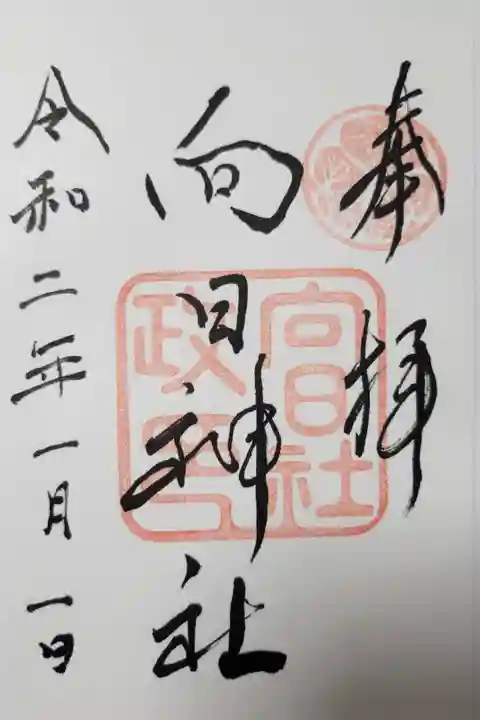 奉拝
向日神社
令和二年一月一日
向日社
政所